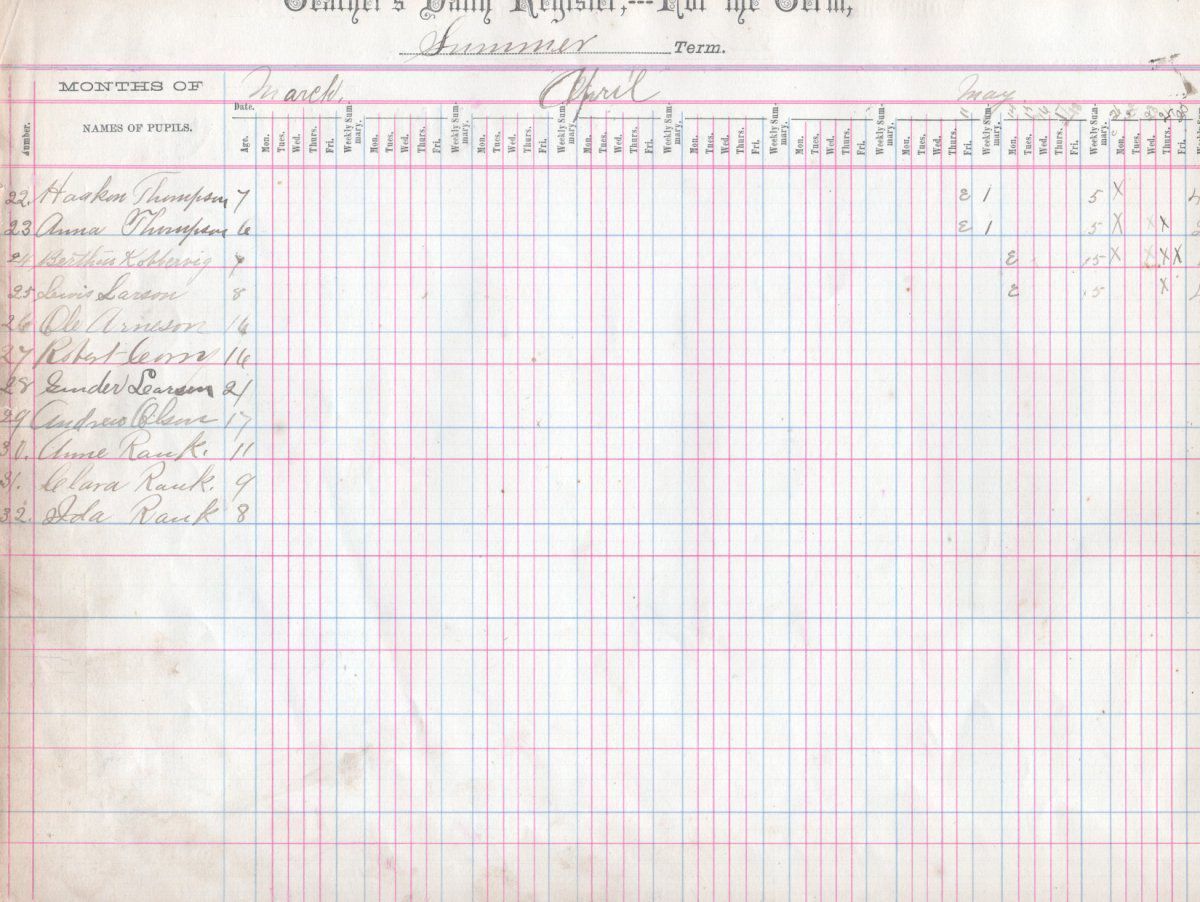 Teacher's Daily Register,---For the Term,
Summer Term.
MONTHS OF March. April May
Number. NAMES OF PUPILS. Date. Age. Mon. Tues. Wed. Thurs. Fri. Weekly Summary. Mon. Tues. Wed. Thurs. Fri. Weekly Summary. Mon. Tues. Wed. Thurs. Fri. Weekly Summary. Mon. Tues. Wed. Thurs. Fri. Weekly Summary. Mon. Tues. Wed. Thurs. Fri. Weekly Summary. Mon. Tues. Wed. Thurs. Fri. Weekly Summary. Mon. Tues. Wed. Thurs. Fri. Weekly Summary. Mon. Tues. Wed. Thurs. Fri. Weekly Summary. Mon. Tues. Wed. Thurs. Fri.
22. Haakon Thompson 7 E 1 5 X 4
23 Anna Thompson 6 E 1 5 X X X
24 Berthus Kobbervig E 15 X X X X
25 Lewis Larson 8 E 5 X
26 Ole Arneson 16
27 Robert 16
28 Larson 21
29 Andrew Olson 17
30. Anne Rauk. 11
31. Clara Rauk. 9
32. Ida Rauk 8